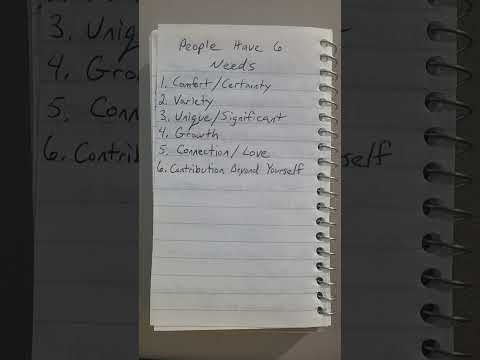 People Have 6
Needs
1. Comfort/Certainty
2. Variety
3. Unique/Significant
4. Growth
5. Connection/Love
6. Contribution Beyond Yourself